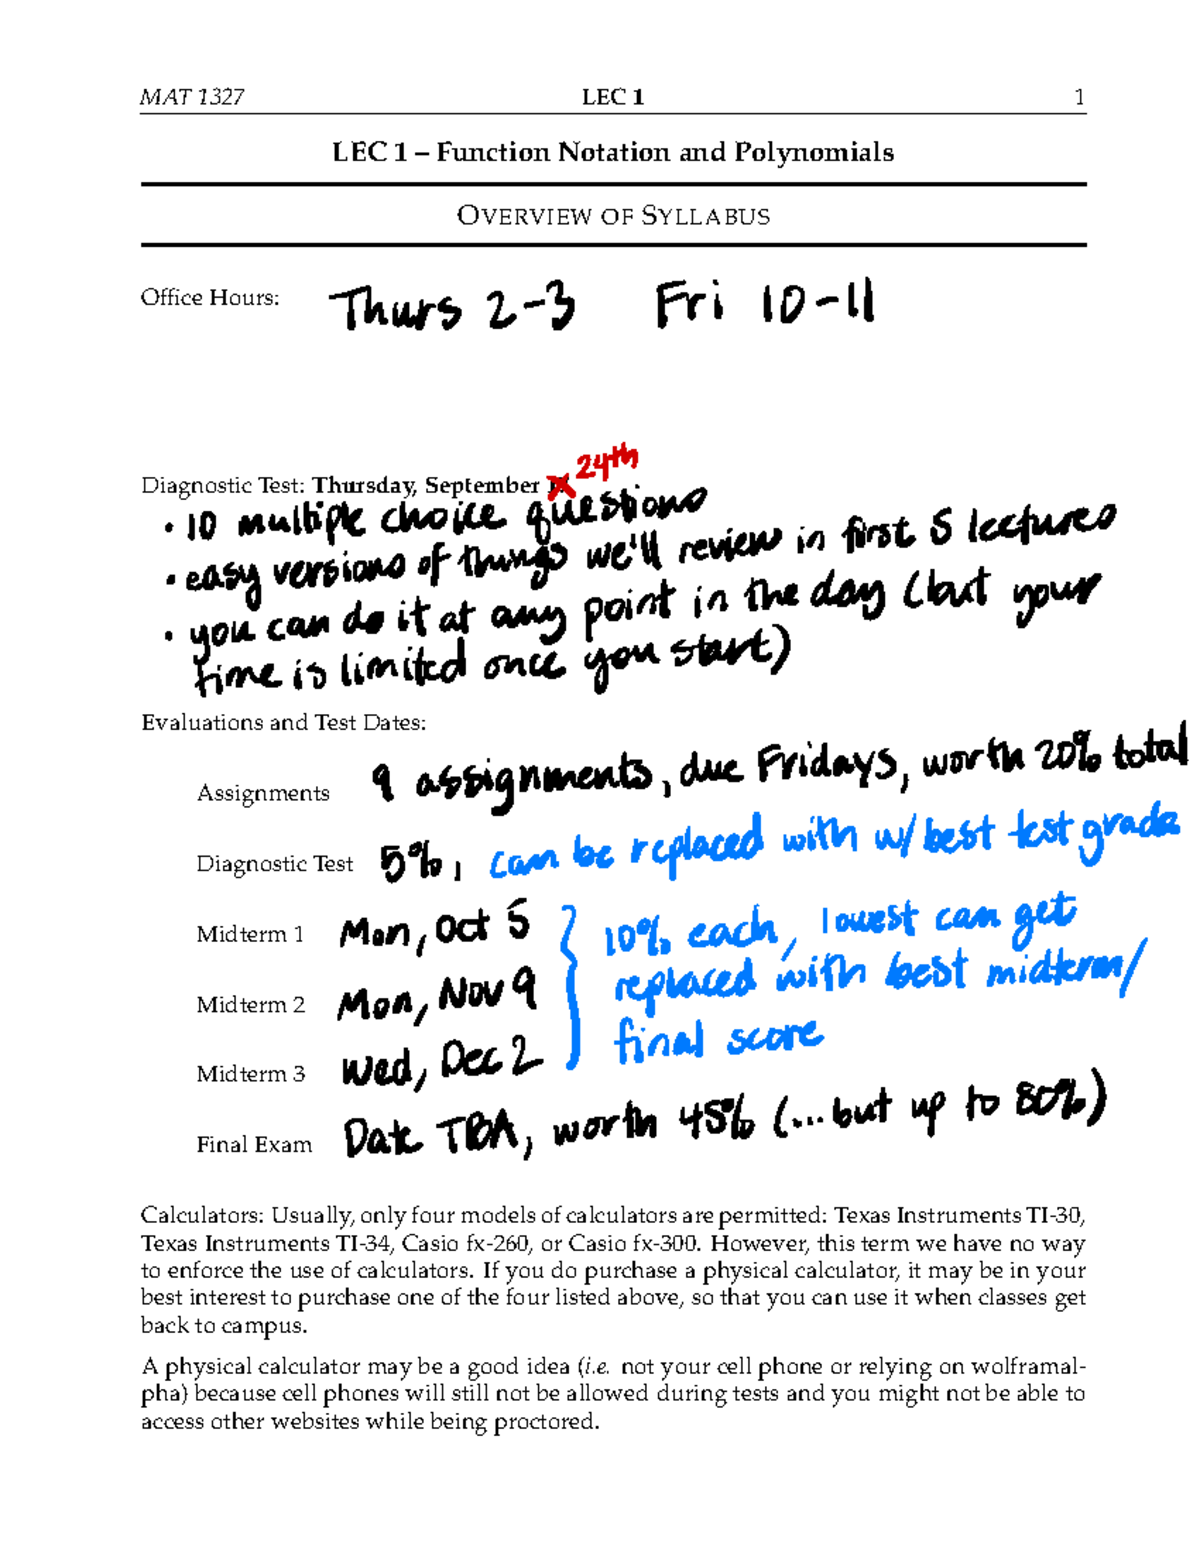 MAT 1327 LEC 1 1
LEC 1 – Function Notation and Polynomials
OVERVIEW OF SYLLABUS
Office Hours: Thurs 2-3 Fri 10-11
24th
Diagnostic Test: Thursday, September
• 10 multiple choice questions
• easy versions of things we'll review in first 5 lectures
• you can do it at any point in the day (but your
time is limited once you start)
Evaluations and Test Dates:
Assignments 9 assignments, due Fridays, worth 20% total
Diagnostic Test 5%, can be replaced with w/ best test grade
Midterm 1 Mon, Oct 5 10% each, lowest can get
Midterm 2 Mon, Nov 9 replaced with best midterm/
Midterm 3 Wed, Dec 2 final score
Final Exam Date TBA, worth 45% (...but up to 80%)
Calculators: Usually, only four models of calculators are permitted: Texas Instruments TI-30,
Texas Instruments TI-34, Casio fx-260, or Casio fx-300. However, this term we have no way
to enforce the use of calculators. If you do purchase a physical calculator, it may be in your
best interest to purchase one of the four listed above, so that you can use it when classes get
back to campus.
A physical calculator may be a good idea (i.e. not your cell phone or relying on wolframal-
pha) because cell phones will still not be allowed during tests and you might not be able to
access other websites while being proctored.